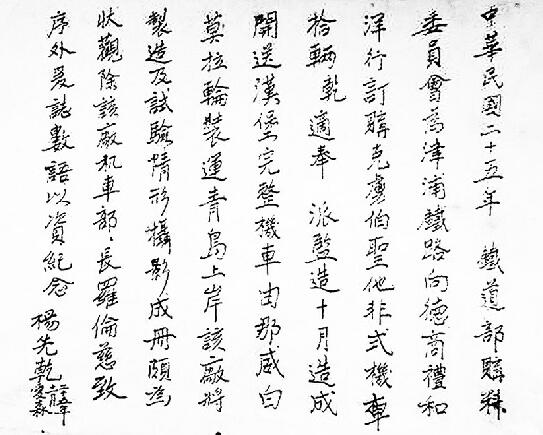 中華民國二十五年 鐵道部購料
委員會為津浦鐵路向德商禮和
洋行訂購克虜伯聖他非式機車
拾輛乾適奉 派監造十月造成
開送漢堡完整機車由那威白
莫拉輪裝運青島上岸該廠將
製造及試驗情形攝影成冊頗為
狀觀除該廠机車部、長羅倫慈致
序外爰誌數語以資紀念 楊先乾